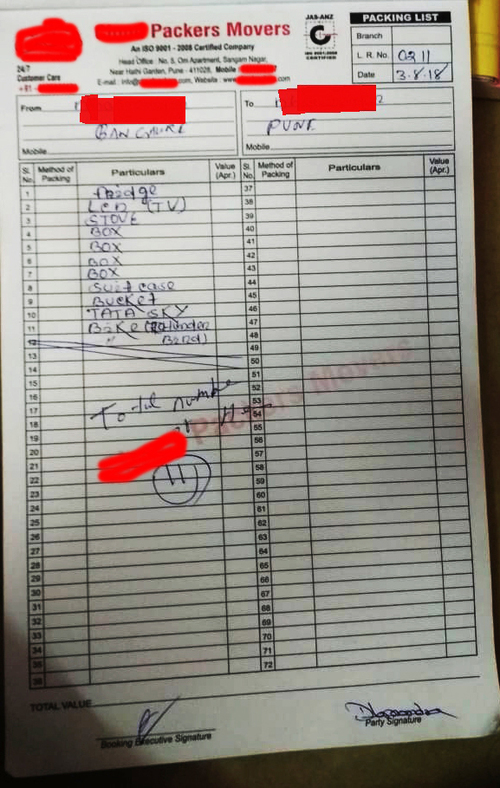 Packers Movers
An ISO 9001 - 2008 Certified Company
Head Office : No. 5, Om Apartment, Sangam Nagar,
Near Hathi Garden, Pune - 411028, Mobile
E-mail : info@ .com, Website : www. .com
24/7
Customer Care
+91 -
JAS-ANZ
C
ISO 9001:2008
CERTIFIED
PACKING LIST
Branch
L. R. No. 0211
Date 3-8-18
From
BANGALORE
Mobile
To
PUNE
Mobile
Sl. No. Method of Packing Particulars Value (Apr.) Sl. No. Method of Packing Particulars Value (Apr.)
1 Fridge 37
2 LCD (TV) 38
3 STOVE 39
4 BOX 40
5 BOX 41
6 BOX 42
7 BOX 43
8 Suit case 44
9 Bucket 45
10 TATA SKY 46
11 Bike 47
12 Band) 48
13 49
14 50
15 51
16 Total number 52
17 53
18 54
19 55
20 56
21 57
22 11 58
23 59
24 60
25 61
26 62
27 63
28 64
29 65
30 66
31 67
32 68
33 69
34 70
35 71
36 72
Packers Movers
TOTAL VALUE
Booking Executive Signature
Party Signature